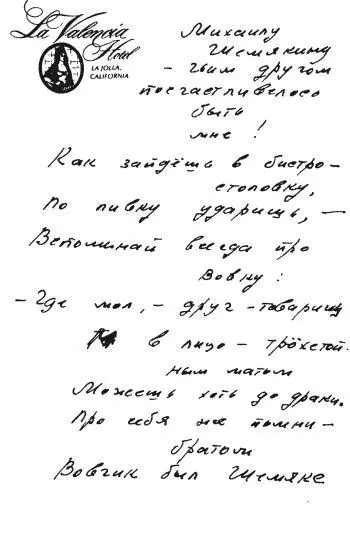 La Valencia
Hotel
LA JOLLA,
CALIFORNIA
Михаилу
Шемякину
– чьим другом
посчастливелось
быть
мне!
Как зайдёшь в бистро-
столовку,
По пивку ударишь, —
Вспоминай всегда про
Вовку:
– Где мол, – друг-товарищ
в лицо – трёхстой-
ным матом
Можешь хоть до драки.
Про себя же помни –
братом
Вовчик был Шемяке